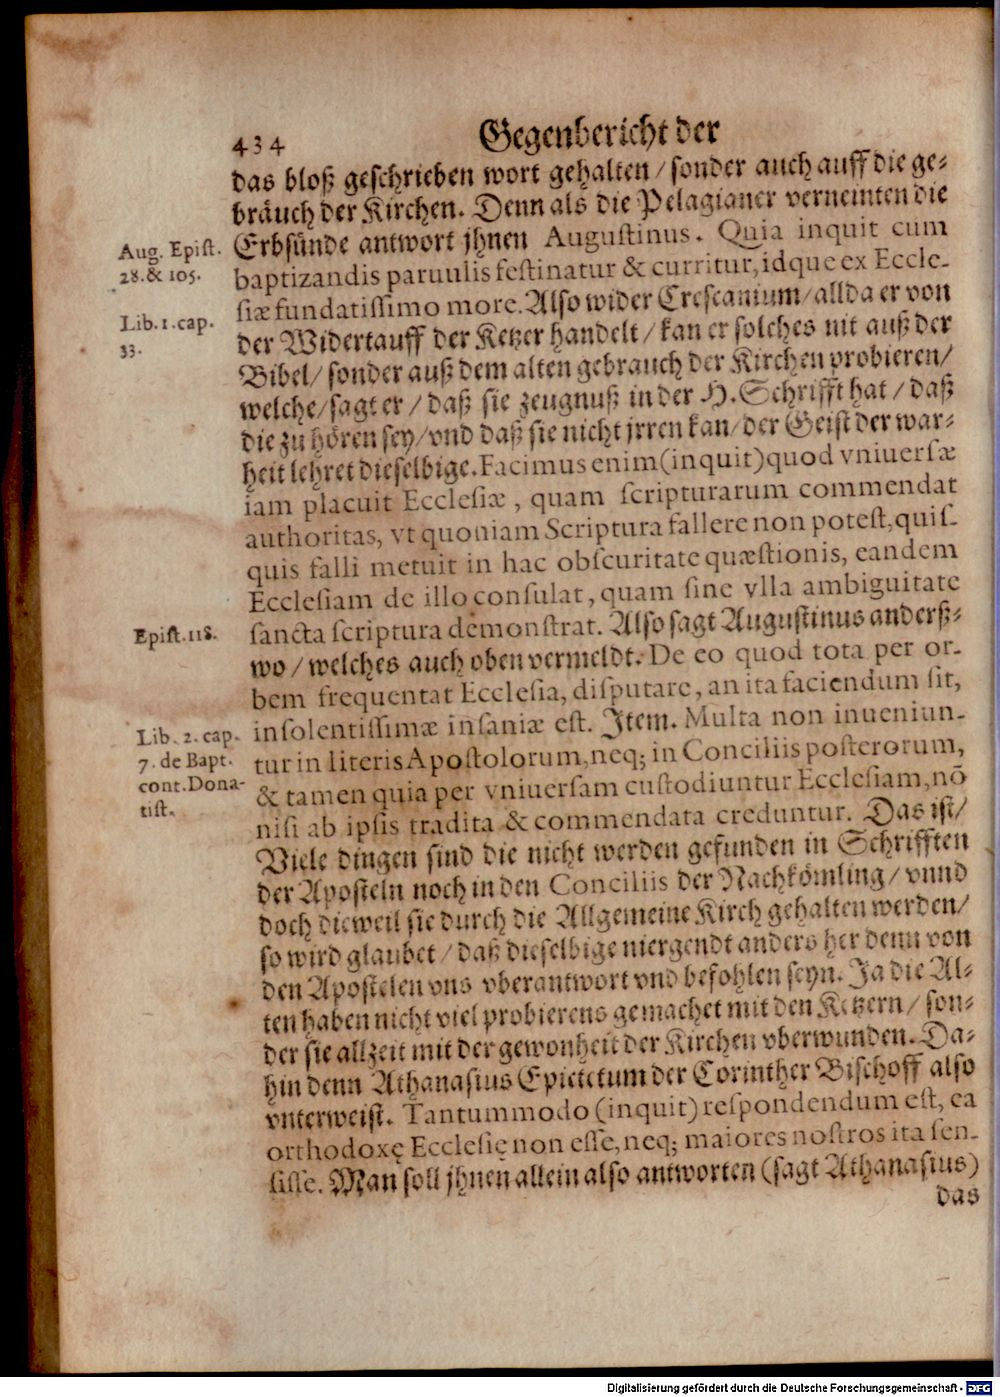 434 Gegenbericht der
das bloß geschrieben wort gehalten / sonder auch auff die ge-
bräuch der Kirchen. Denn als die Pelagianer verneinten die
Erbsünde antwort jhnen Augustinus. Quia inquit cum
baptizandis paruulis festinatur & curritur, idque ex Eccle-
siæ fundatissimo more. Also wider Cresconium / allda er von
der Widertauff der Ketzer handelt / kan er solches nit auß der
Bibel / sonder auß dem alten gebrauch der Kirchen probieren /
welche / sagt er / daß sie zeugnuß in der H. Schrifft hat / daß
die zu hören sey / vnd daß sie nicht jrren kan / der Geist der war-
heit lehret dieselbige. Facimus enim (inquit) quod vniuersæ
iam placuit Ecclesiæ, quam scripturarum commendat
authoritas, vt quoniam Scriptura fallere non potest, quis-
quis falli metuit in hac obscuritate quæstionis, eandem
Ecclesiam de illo consulat, quam sine vlla ambiguitate
sancta scriptura demonstrat. Also sagt Augustinus anderß-
wo / welches auch oben vermeldt. De eo quod tota per or-
bem frequentat Ecclesia, disputare, an ita faciendum sit,
insolentissimæ insaniæ est. Item. Multa non inueniun-
tur in literis Apostolorum, neq; in Conciliis posterorum,
& tamen quia per vniuersam custodiuntur Ecclesiam, nõ
nisi ab ipsis tradita & commendata creduntur. Das ist /
Viele dingen sind die nicht werden gefunden in Schrifften
der Aposteln noch in den Conciliis der Nachkömling / vnnd
doch dieweil sie durch die Allgemeine Kirch gehalten werden /
so wird glaubet / daß dieselbige niergendt anders her denn von
den Apostelen vns vberantwort vnd befohlen seyn. Ja die Al-
ten haben nicht viel probierens gemachet mit den Ketzern / son-
der sie allzeit mit der gewonheit der Kirchen vberwunden. Da-
hin denn Athanasius Epictetum der Corinther Bischoff also
vnterweist. Tantummodo (inquit) respondendum est, ea
orthodoxę Ecclesię non esse, neq; maiores nostros ita sen-
sisse. Man soll jhnen allein also antworten (sagt Athanasius)
das
Aug. Epist.
28. & 105.
Lib. 1. cap.
33.
Epist. 118.
Lib. 2. cap.
7. de Bapt.
cont. Dona-
tist.
Digitalisierung gefördert durch die Deutsche Forschungsgemeinschaft - DFG